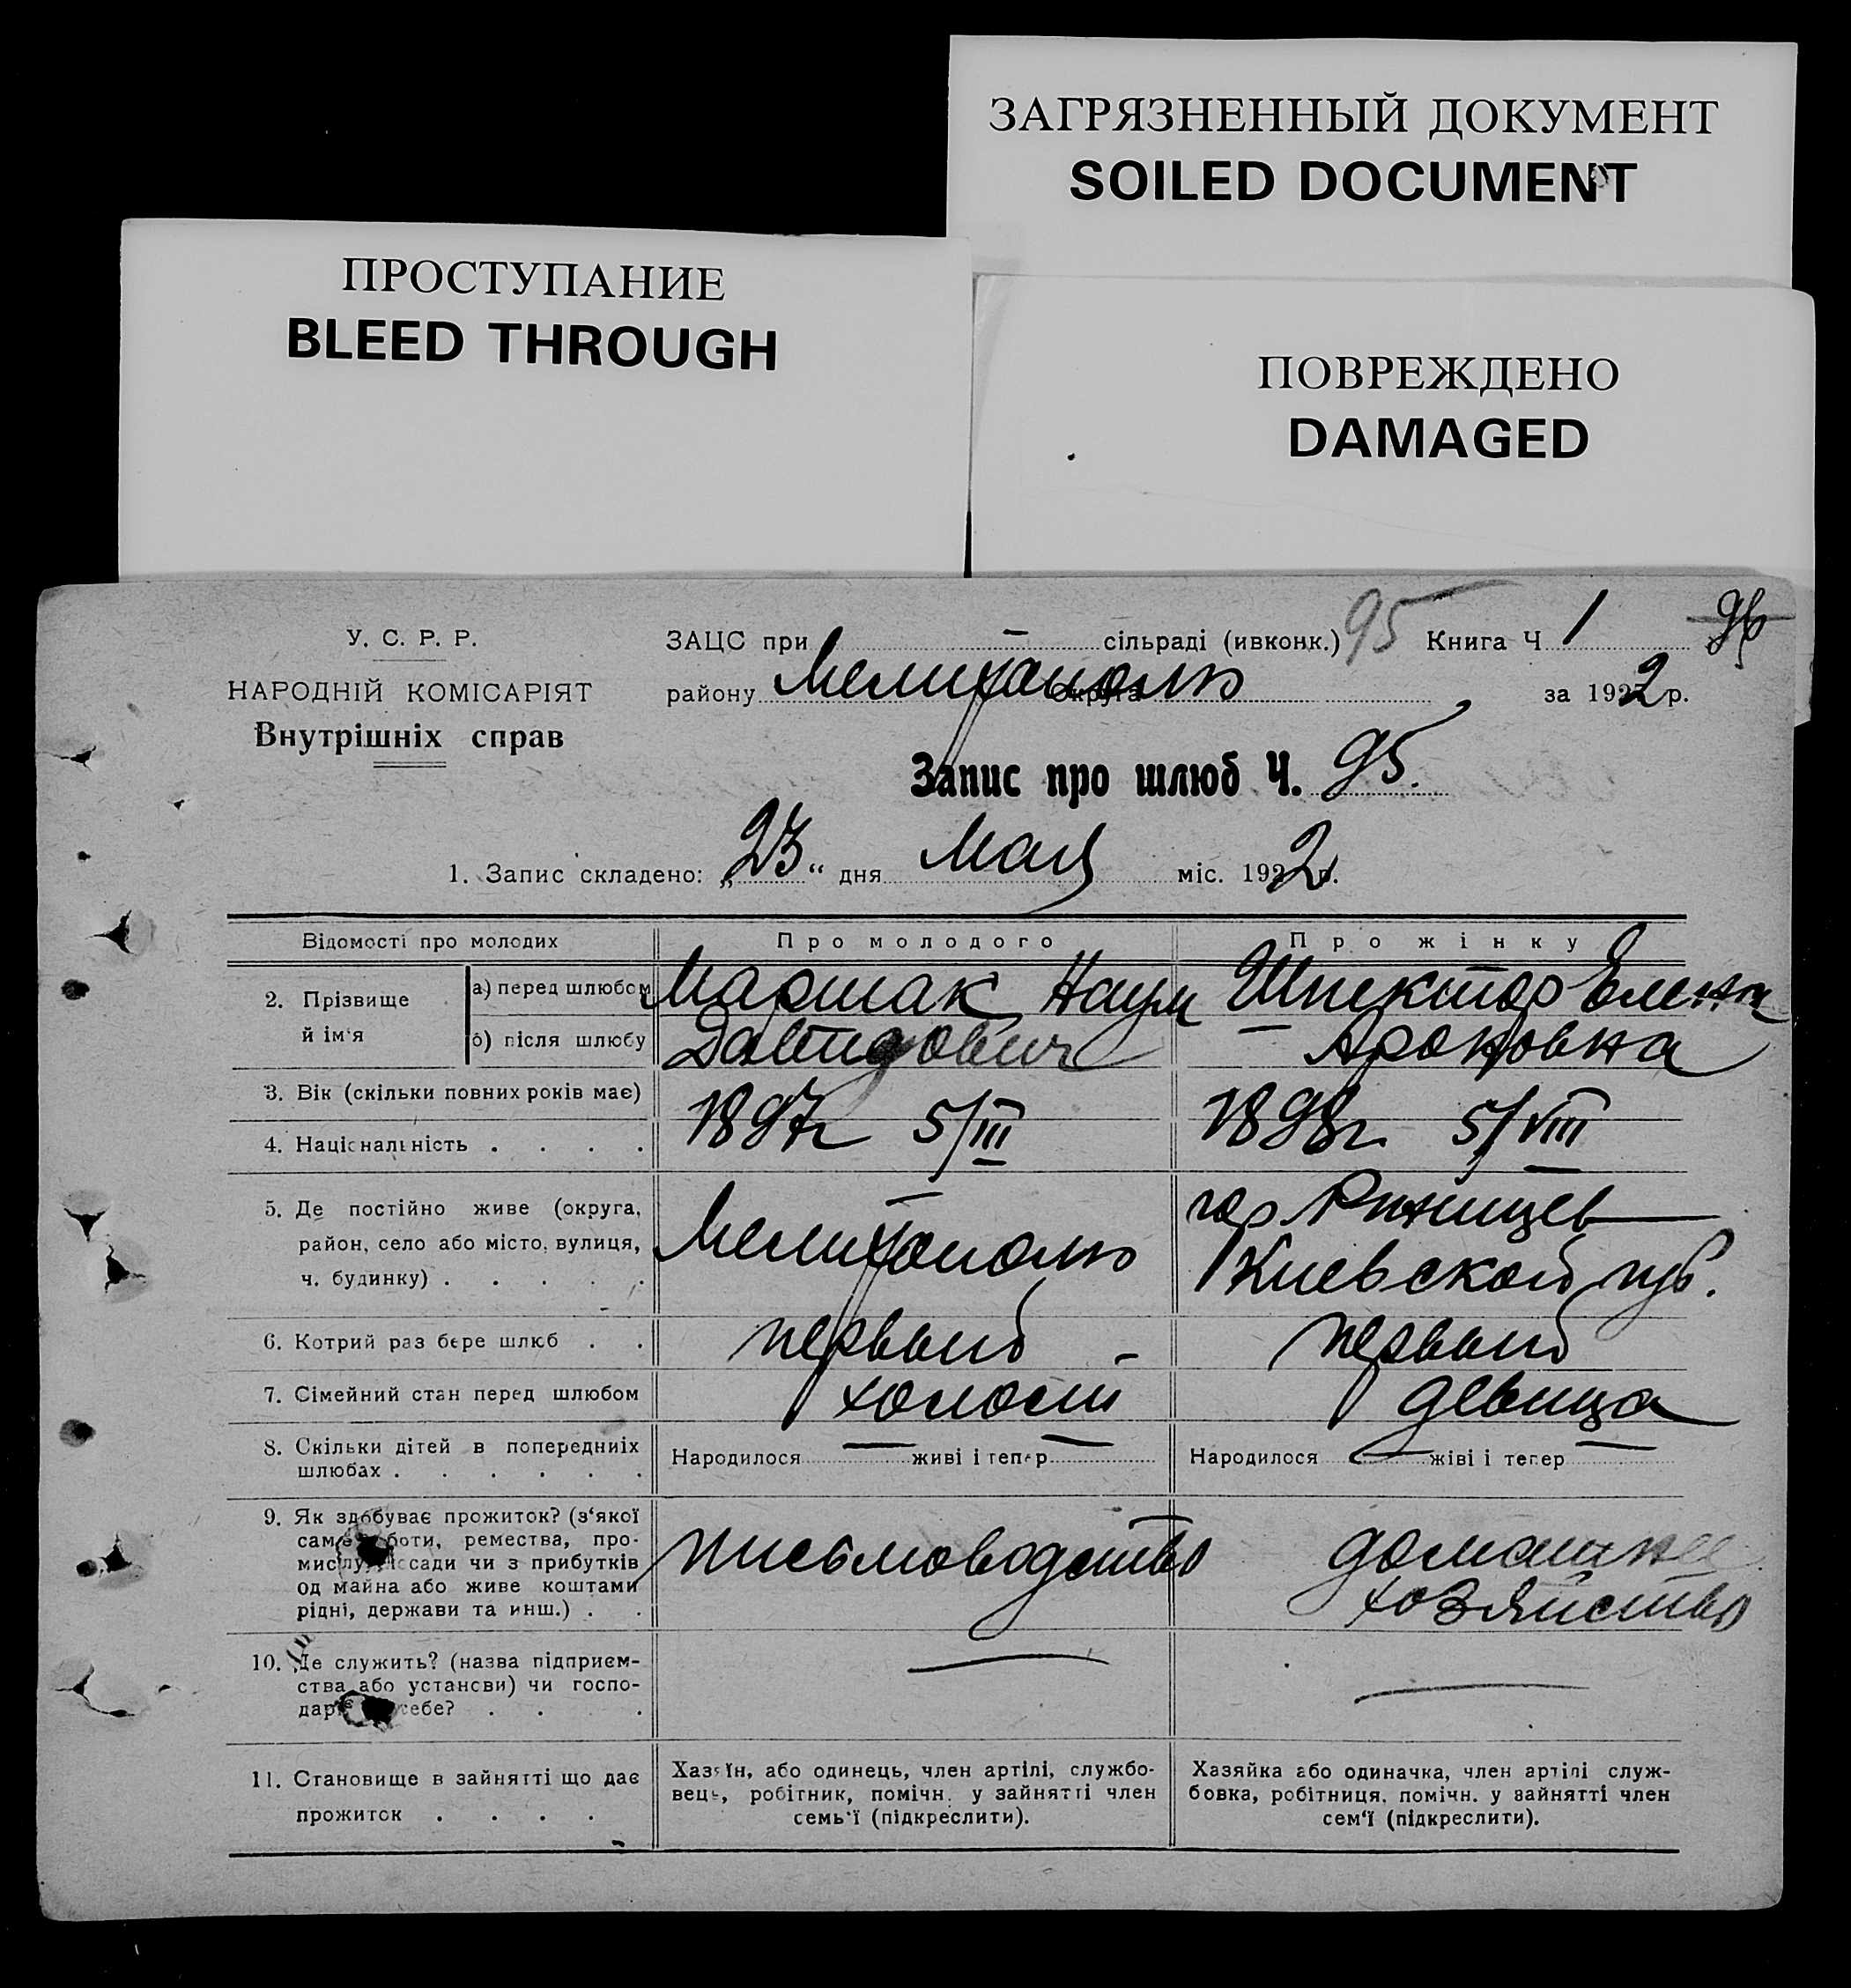 ЗАГРЯЗНЕННЫЙ ДОКУМЕНТ
SOILED DOCUMENT
ПРОСТУПАНИЕ
BLEED THROUGH
ПОВРЕЖДЕНО
DAMAGED
У. С. Р. Р.
НАРОДНІЙ КОМІСАРІЯТ
Внутрішніх справ
ЗАЦС при — сільраді (ивконк.) 95 Книга Ч 1 96
району Мелитополь Округа за 1922 р.
Запис про шлюб Ч. 95.
1. Запис складено: „23“ дня Мая міс. 1922 р.
Відомості про молодих Про молодого Про жінку
2. Прізвище й ім'я
а) перед шлюбом Маршак Наум Шпектор Елена
б) після шлюбу Давидович Ароновна
3. Вік (скільки повних років має)
4. Національність . . . . 1897г 5/III 1898г. 5/VIII
5. Де постійно живе (округа,
район, село або місто, вулиця,
ч. будинку) . . . . .
Мелитополь
гор Ржищев
Киевской губ.
6. Котрий раз бере шлюб . . первый – первый
7. Сімейний стан перед шлюбом холост девица
8. Скільки дітей в попередниіх
шлюбах . . . . . .
Народилося — живі і тепер —
Народилося — жіві і тепер —
9. Як здобуває прожиток? (з'якої
роботи, ремества, про-
мислу, посади чи з прибутків
од майна або живе коштами
рідні, держави та инш.) . .
письмоводство
домашнее
хозяйство
10. Де служить? (назва підприєм-
ства або устансви) чи госпо-
себе? . . .
—
—
11. Становище в зайнятті що дає
прожиток . . . .
Хазяїн, або одинець, член артілі, службо-
вець, робітник, помічн. у зайнятті член
семь'ї (підкреслити).
Хазяйка або одиначка, член артілі служ-
бовка, робітниця, помічн. у зайнятті член
сем'ї (підкреслити).